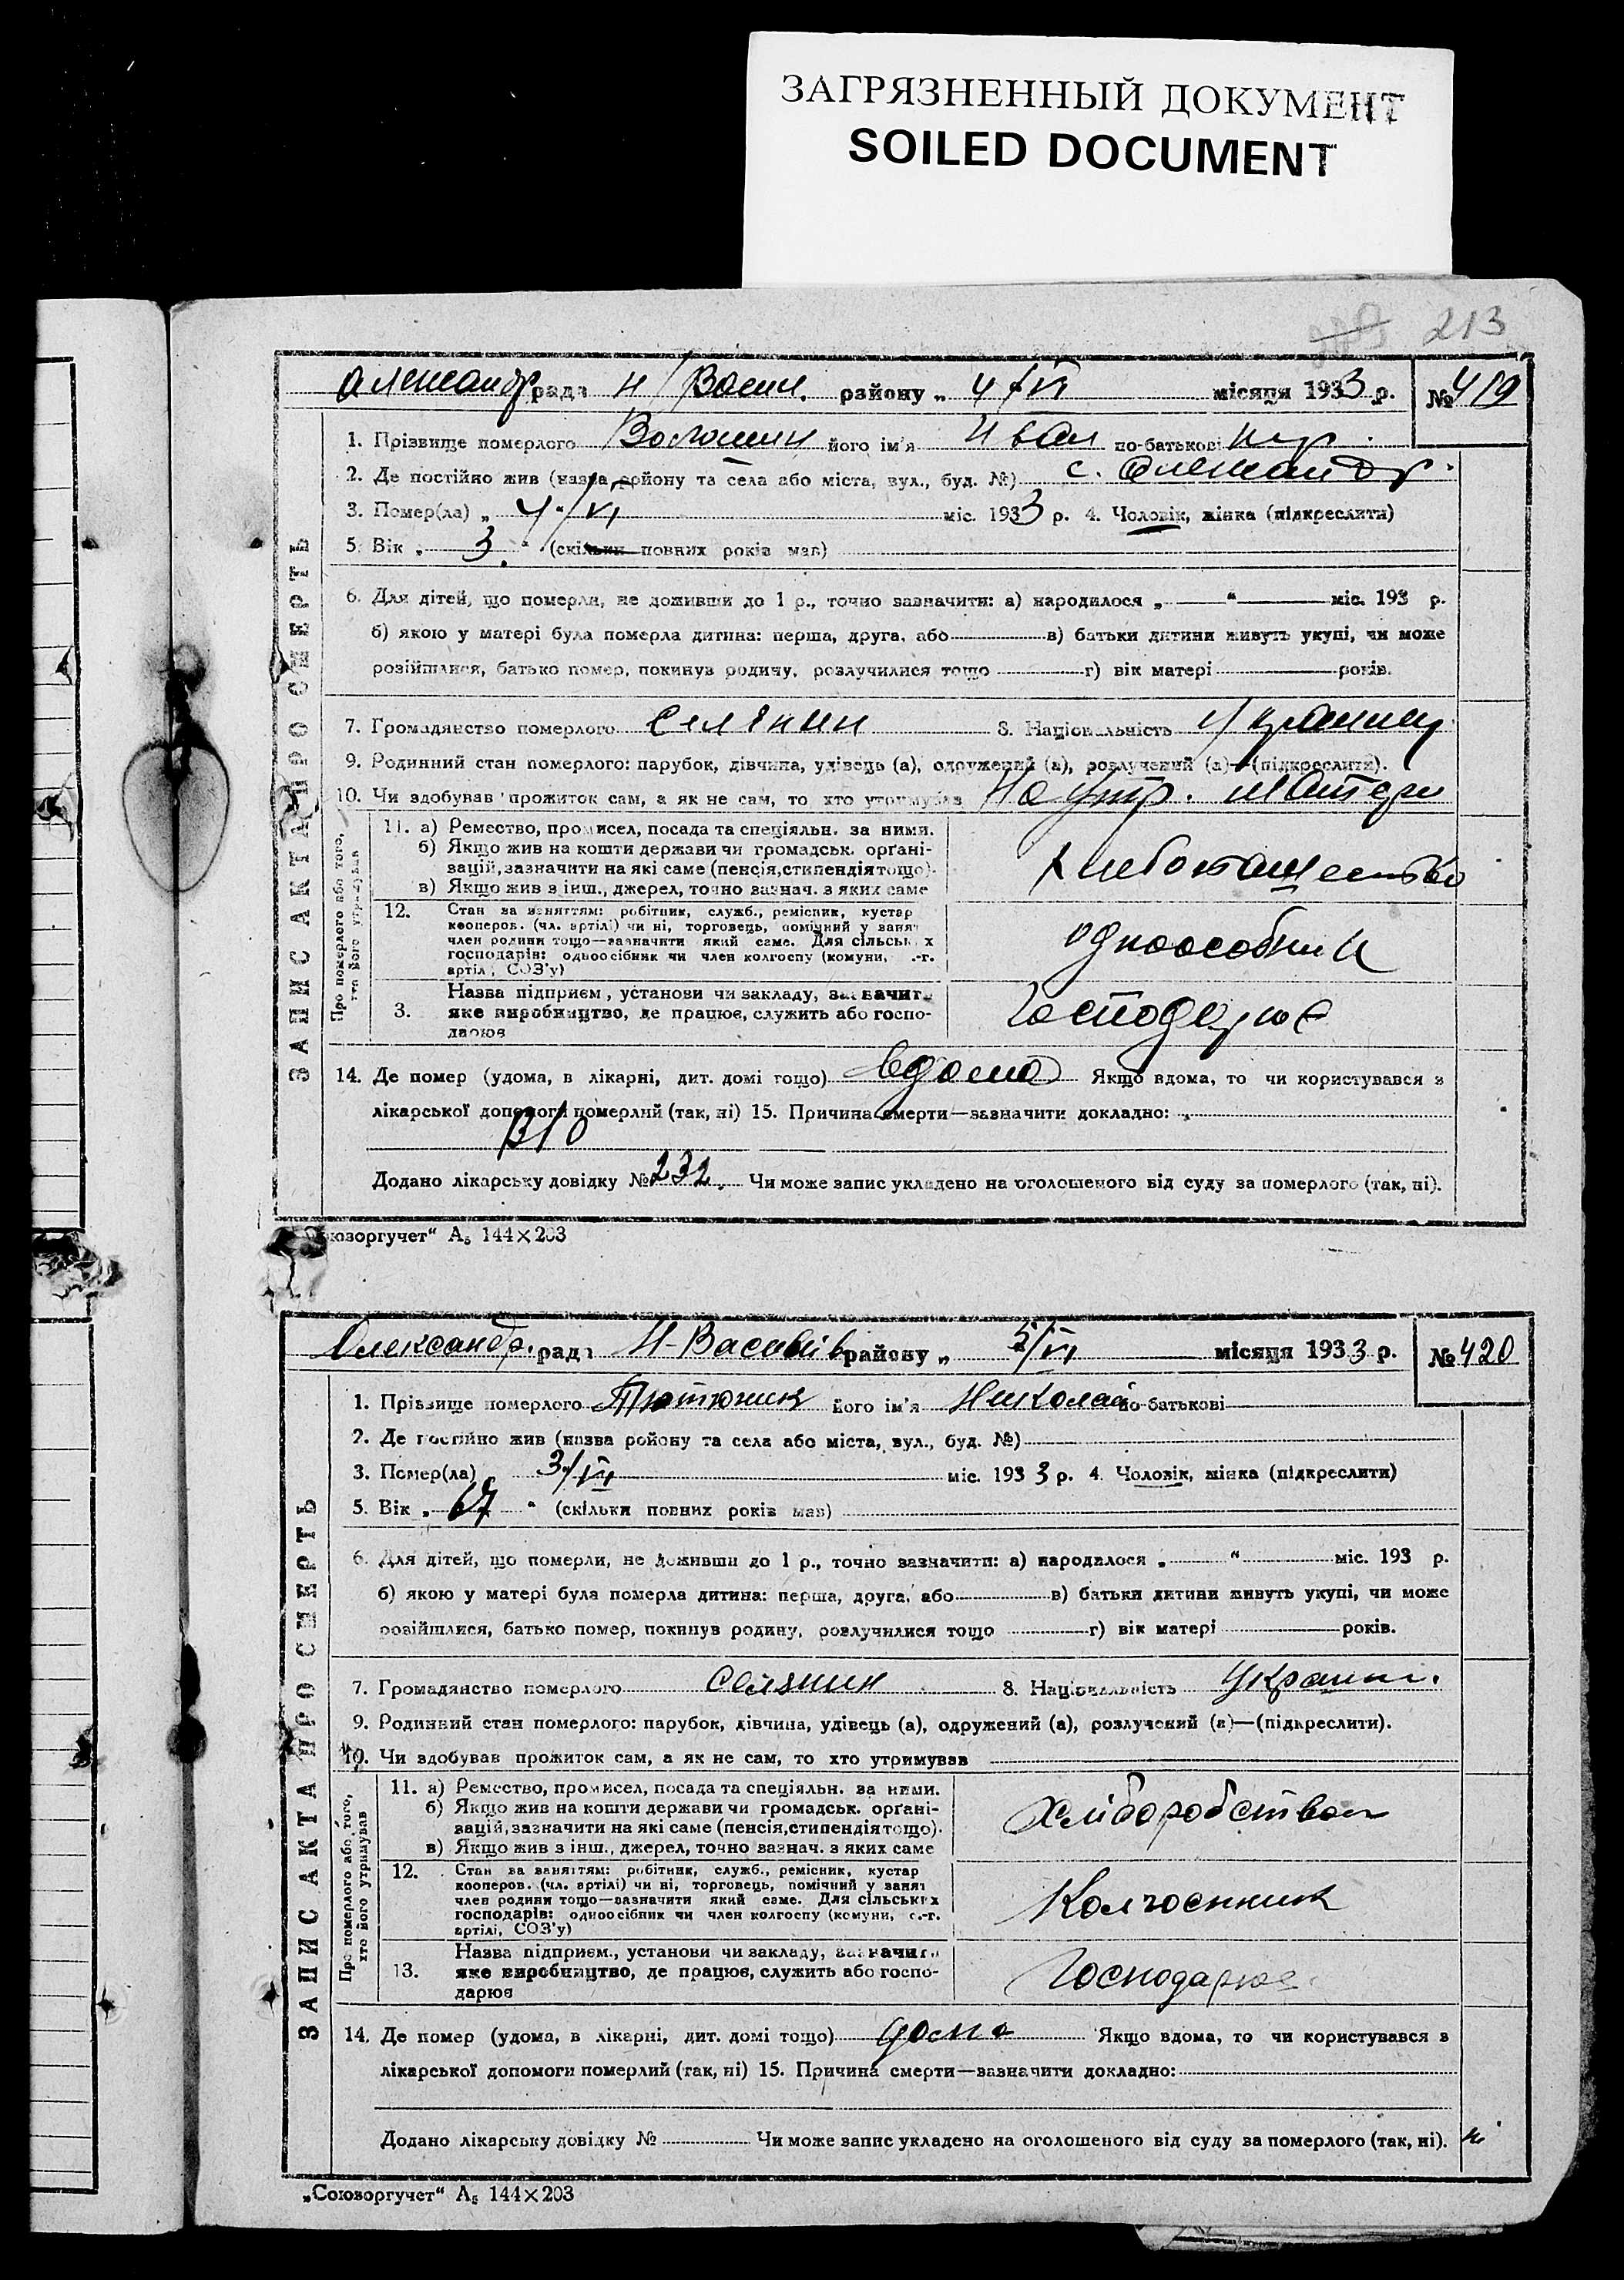 ЗАГРЯЗНЕННЫЙ ДОКУМЕНТ
SOILED DOCUMENT
213
Олександр. рада Н/Васил. району „ 4/VI місяця 1933 р. № 419
1. Прізвище померлого Волошин його ім'я Иван по-батькові
2. Де постійно жив (назва району та села або міста, вул., буд. №) с. Олександр.
3. Помер(ла) „ 4/VI міс. 1933 р. 4. Чоловік, жінка (підкреслити)
5. Вік „ 3 “ (скільки повних років мав)
6. Для дітей, що померли, не доживши до 1 р., точно зазначити: а) народилося „ “ міс. 193 р.
б) якою у матері була померла дитина: перша, друга, або в) батьки дитини живуть укупі, чи може
розійшлися, батько помер, покинув родину, розлучилися тощо г) вік матері років.
7. Громадянство померлого Селянин 8. Національність Украинец
9. Родинний стан померлого: парубок, дівчина, удівець (а), одружений (а), розлучений (а)—(підкреслити).
10. Чи здобував прожиток сам, а як не сам, то хто утримував На утр. матери
ЗАПИС АКТА ПРО СМЕРТЬ
Про померлого або того,
хто його утримував
11. а) Ремество, промисел, посада та спеціяльн. за ними.
б) Якщо жив на кошти держави чи громадськ. орґані-
зацій, зазначити на які саме (пенсія, стипендія тощо).
в) Якщо жив з інш., джерел, точно зазнач. з яких саме
12. Стан за заняттям: робітник, служб., ремісник, кустар
кооперов. (чл. артілі) чи ні, торговець, помічний у занят
член родини тощо—зазначити який саме. Для сільських
господарів: одноосібник чи член колгоспу (комуни, с.-г.
артілі, СОЗ'у)
одноособник
3. Назва підприєм., установи чи закладу, зазначити
яке виробництво, де працює, служить або госпо-
дарює
Господарює
14. Де помер (удома, в лікарні, дит. домі тощо) вдома Якщо вдома, то чи користувався з
лікарської допомоги померлий (так, ні) 15. Причина смерти—зазначити докладно:
Додано лікарську довідку № 232. Чи може запис укладено на оголошеного від суду за померлого (так, ні).
„Союзоргучет“ А₅ 144×203
Олександр. рада Н-Василів району „ 5/VI місяця 1933 р. № 420
1. Прізвище померлого Тютюник його ім'я Николай по-батькові
2. Де постійно жив (назва району та села або міста, вул., буд. №)
3. Помер(ла) 3/VI міс. 1933 р. 4. Чоловік, жінка (підкреслити)
5. Вік „ 67 “ (скільки повних років мав)
6. Для дітей, що померли, не доживши до 1 р., точно зазначити: а) народилося „ “ міс. 193 р.
б) якою у матері була померла дитина: перша, друга, або в) батьки дитини живуть укупі, чи може
розійшлися, батько помер, покинув родину, розлучилися тощо г) вік матері років.
7. Громадянство померлого Селянин 8. Національність Украин.
9. Родинний стан померлого: парубок, дівчина, удівець (а), одружений (а), розлучений (а)—(підкреслити).
10. Чи здобував прожиток сам, а як не сам, то хто утримував
ЗАПИС АКТА ПРО СМЕРТЬ
Про померлого або того,
хто його утримував
11. а) Ремество, промисел, посада та спеціяльн. за ними.
б) Якщо жив на кошти держави чи громадськ. орґані-
зацій, зазначити на які саме (пенсія, стипендія тощо).
в) Якщо жив з інш., джерел, точно зазнач. з яких саме
Хліборобством
12. Стан за заняттям: робітник, служб., ремісник, кустар
кооперов. (чл. артілі) чи ні, торговець, помічний у занят
член родини тощо—зазначити який саме. Для сільських
господарів: одноосібник чи член колгоспу (комуни, с.-г.
артілі, СОЗ'у)
Колгоспник
13. Назва підприєм., установи чи закладу, зазначити
яке виробництво, де працює, служить або госпо-
дарює
Господарює
14. Де помер (удома, в лікарні, дит. домі тощо) дома Якщо вдома, то чи користувався з
лікарської допомоги померлий (так, ні) 15. Причина смерти—зазначити докладно:
Додано лікарську довідку № Чи може запис укладено на оголошеного від суду за померлого (так, ні). ні
„Союзоргучет“ А₅ 144×203